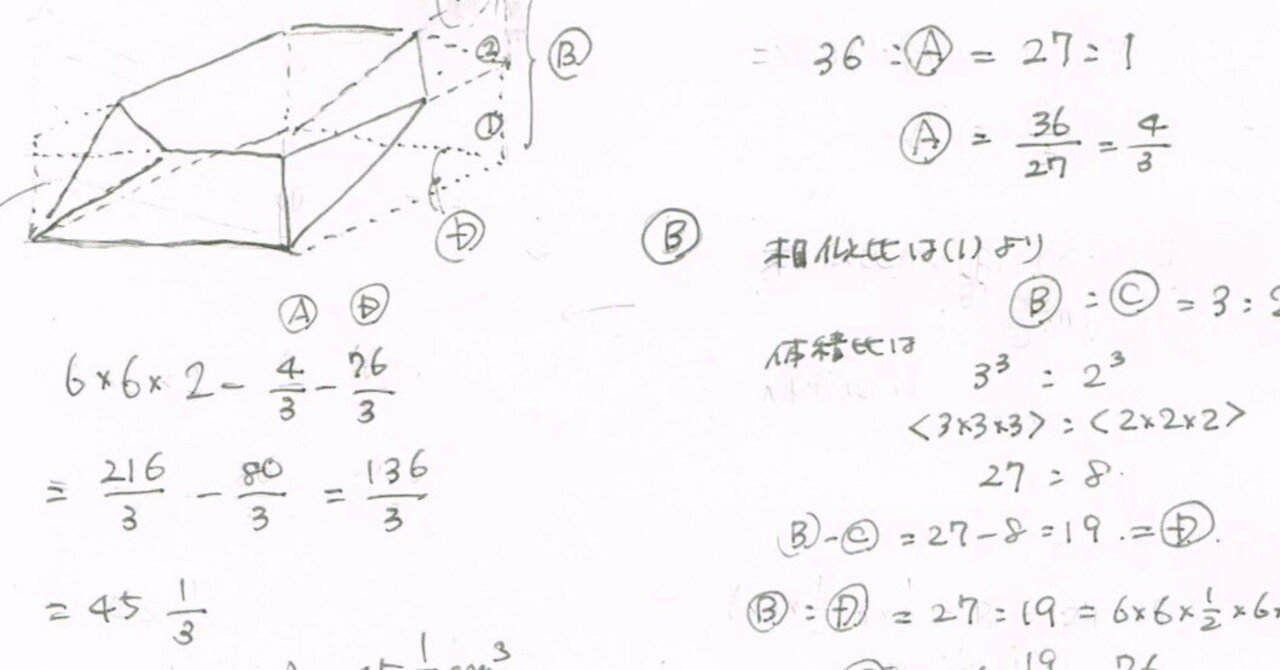 ② Ⓑ
①
Ⓓ
Ⓐ Ⓓ
6×6×2 - 4/3 - 76/3
= 216/3 - 80/3 = 136/3
= 45 1/3
= 36 : Ⓐ = 27 : 1
Ⓐ = 36/27 = 4/3
Ⓑ 相似比は(1)より
Ⓑ : Ⓒ = 3 : 2
体積比は
3³ : 2³
<3×3×3> : <2×2×2>
27 : 8
Ⓑ-Ⓒ = 27-8 = 19 . = Ⓓ.
Ⓑ : Ⓓ = 27 : 19 = 6×6×1/2×6×